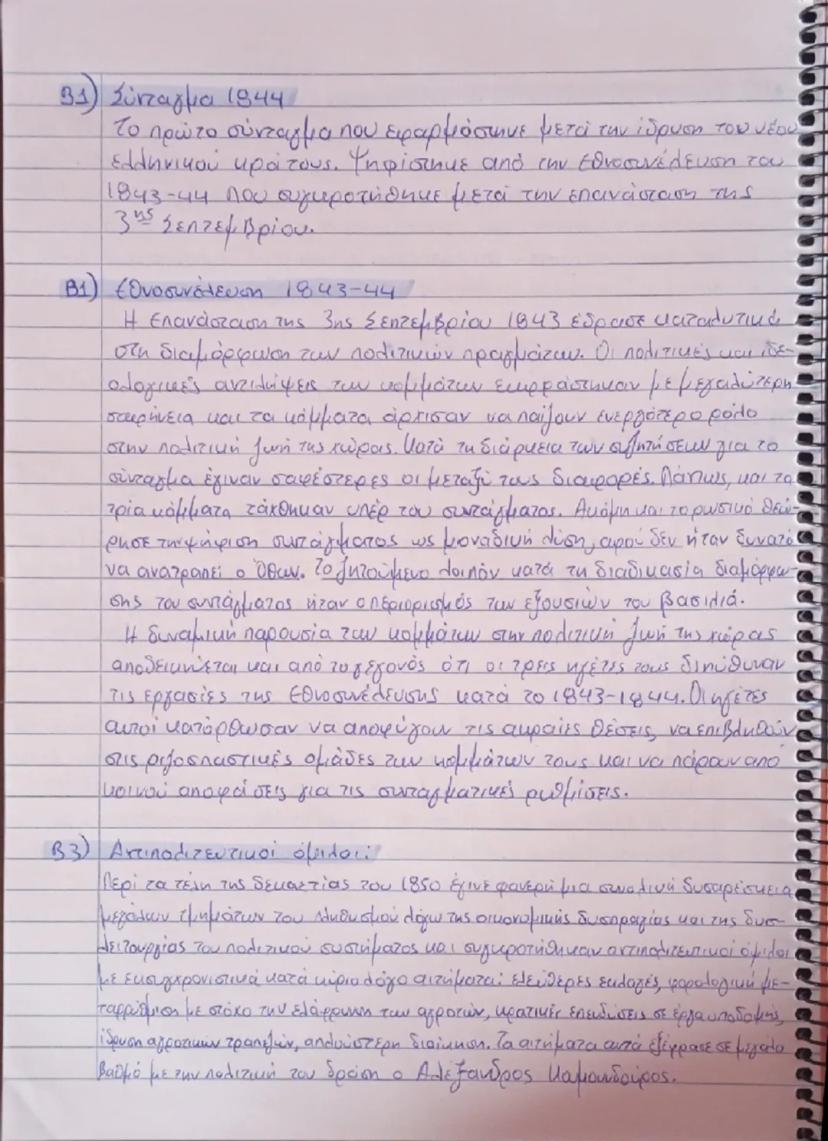 Β1) Σύνταγμα 1844
Το πρώτο σύνταγμα που εφαρμόστηκε μετά την ίδρυση του νέου
ελληνικού κράτους. Ψηφίστηκε από την Εθνοσυνέλευση του
1843-44 που συγκροτήθηκε μετά την επανάσταση της
3ης Σεπτεμβρίου.
Β1) Εθνοσυνέλευση 1843-44
Η Επανάσταση της 3ης Σεπτεμβρίου 1843 έδρασε καταλυτικά
στη διαμόρφωση των πολιτικών πραγμάτων. Οι πολιτικές και ιδε-
ολογικές αντιλήψεις των κομμάτων εκφράστηκαν με μεγαλύτερη
σαφήνεια και τα κόμματα άρχισαν να παίζουν ενεργότερο ρόλο
στην πολιτική ζωή της χώρας. Κατά τη διάρκεια των συζητήσεων για το
σύνταγμα έγιναν σαφέστερες οι μεταξύ τους διαφορές. Πάντως, και τα
τρία κόμματα τάχθηκαν υπέρ του συντάγματος. Ακόμη και το ρωσικό θεώ-
ρησε την ψήφιση συντάγματος ως μοναδική λύση, αφού δεν ήταν δυνατό
να ανατραπεί ο Όθων. Το ζητούμενο λοιπόν κατά τη διαδικασία διαμόρφω-
σης του συντάγματος ήταν ο περιορισμός των εξουσιών του βασιλιά.
Η δυναμική παρουσία των κομμάτων στην πολιτική ζωή της χώρας
αποδεικνύεται και από το γεγονός ότι οι τρεις ηγέτες τους διηύθυναν
τις εργασίες της Εθνοσυνέλευσης κατά το 1843-1844. Οι ηγέτες
αυτοί κατόρθωσαν να αποφύγουν τις ακραίες θέσεις, να επιβληθούν
στις ριζοσπαστικές ομάδες των κομμάτων τους και να πάρουν από
κοινού αποφάσεις για τις συνταγματικές ρυθμίσεις.
Β3) Αντιπολιτευτικοί όμιλοι:
Περί τα τέλη της δεκαετίας του 1850 έγινε φανερή μια συνολική δυσαρέσκεια
μεγάλων τμημάτων του πληθυσμού λόγω της οικονομικής δυσπραγίας και της δυσ-
λειτουργίας του πολιτικού συστήματος και συγκροτήθηκαν αντιπολιτευτικοί όμιλοι
με εκσυγχρονιστικά κατά κύριο λόγο αιτήματα: ελεύθερες εκλογές, φορολογική με-
ταρρύθμιση με στόχο την ελάφρυνση των αγροτών, κρατικές επενδύσεις σε έργα υποδομής,
ίδρυση αγροτικών τραπεζών, απλούστερη διοίκηση. Τα αιτήματα αυτά εξέφρασε σε μεγάλο
βαθμό με την πολιτική του δράση ο Αλέξανδρος Κουμουνδούρος.